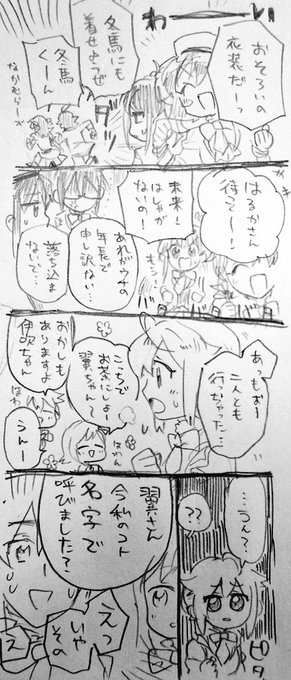 わーーい
おそろいの
衣装だーっ
冬馬にも
着せようぜ
冬馬
くーん
なかむらーズ
はるかさん
待って〜!
未来!
はしゃが
ないの!
あれがウチの
年長で
申し訳ない…
落ち込ま
ないで…
あっもおー
二人とも
行っちゃった…
こっちで
お茶にしよー
翼ちゃん〜
ほわん
おかしも
ありますよ
伊吹ちゃん
うんー
…うん?
??
ピタ
翼さん
今私のコト
名字で
呼びました?
えっ
いや
その